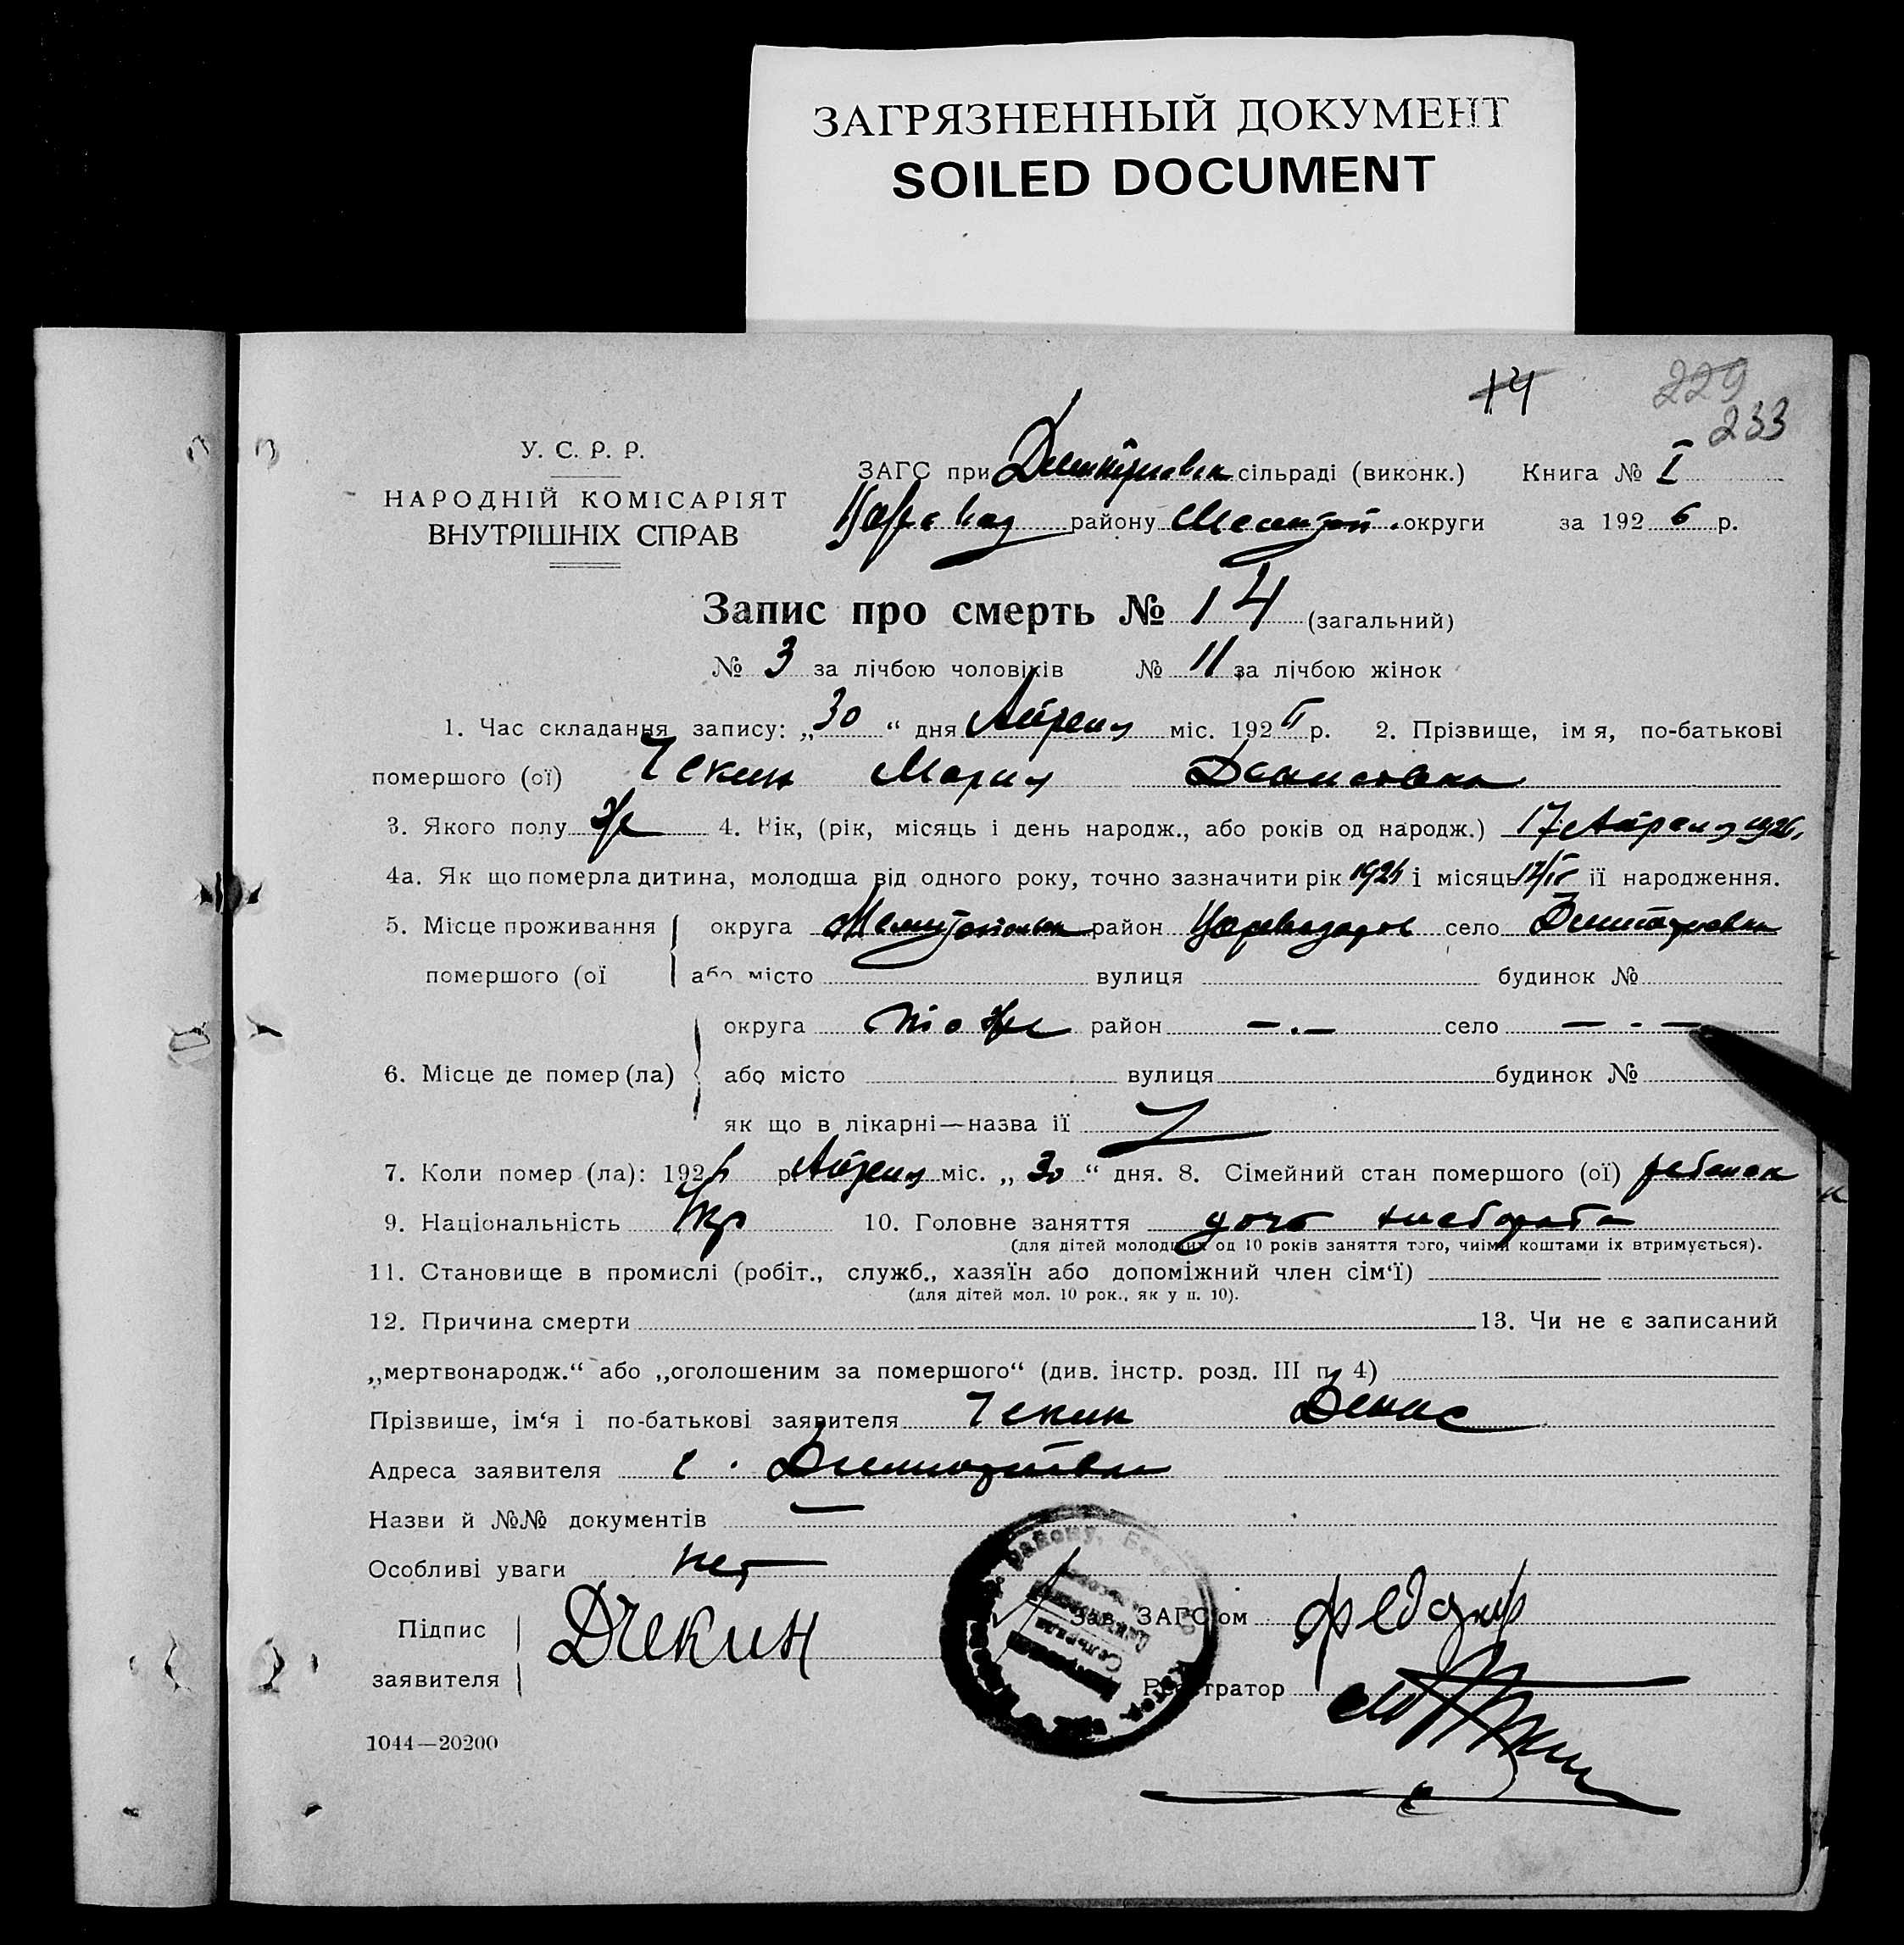 ЗАГРЯЗНЕННЫЙ ДОКУМЕНТ
SOILED DOCUMENT
14
229
233
У. С. Р. Р.
НАРОДНІЙ КОМІСАРІЯТ
ВНУТРІШНІХ СПРАВ
ЗАГС при сільраді (виконк.) Книга № I
району округи за 192 6 р.
Запис про смерть № 14 (загальний)
№ 3 за лічбою чоловіків № 11 за лічбою жінок
1. Час складання запису: „ 30 “ дня Апреля міс. 192 6 р. 2. Прізвище, імя, по-батькові
помершого (ої) Чекин Мария Денисовна
3. Якого полу ж 4. Вік, (рік, місяць і день народж., або років од народж.) 17 Апреля 1926,
4а. Як що померла дитина, молодша від одного року, точно зазначити рік 1926 і місяць 17/IV її народження.
5. Місце проживання округа район село
помершого (ої або місто вулиця будинок №
округа то же район — . — село — . —
6. Місце де помер (ла) або місто вулиця будинок №
як що в лікарні—назва її
7. Коли помер (ла): 192 6 р. Апреля міс. „ 30 “ дня. 8. Сімейний стан помершого (ої) ребенок
9. Національність Укр 10. Головне заняття дочь хлебороба
(для дітей молодших од 10 років заняття того, чиїми коштами їх втримується).
11. Становище в промислі (робіт., служб., хазяїн або допоміжний член сім‘ї)
(для дітей мол. 10 рок., як у п. 10).
12. Причина смерти 13. Чи не є записаний
„мертвонародж.“ або „оголошеним за помершого“ (див. інстр. розд. III п. 4)
Прізвише, ім‘я і по-батькові заявителя Чекин Денис
Адреса заявителя с.
Назви й №№ документів —
Особливі уваги нет
Підпис
заявителя
ДЧекин
Зав. ЗАГС‘ом
Реєстратор
1044—20200